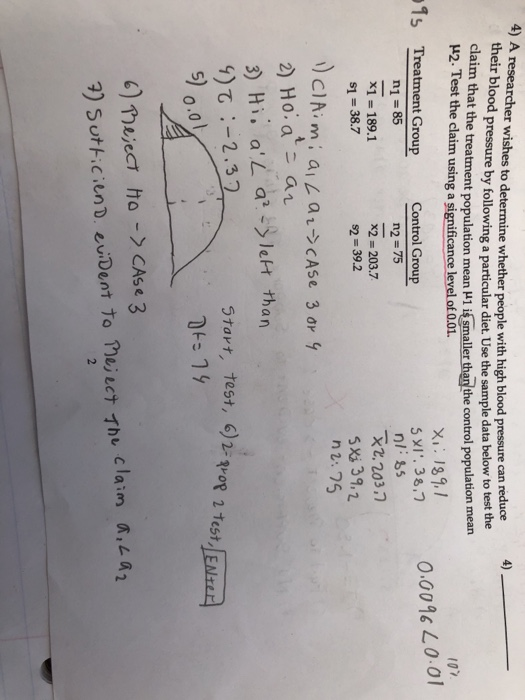 4) A researcher wishes to determine whether people with high blood pressure can reduce
their blood pressure by following a particular diet. Use the sample data below to test the
claim that the treatment population mean μ1 is smaller than the control population mean
μ2. Test the claim using a significance level of 0.01.
4)
Treatment Group Control Group
n1 = 85 n2 = 75
x1 = 189.1 x2 = 203.7
s1 = 38.7 s2 = 39.2
x1: 189.1
sx1: 38.7
n1: 85
x2: 203.7
sx2: 39.2
n2: 75
10%
0.0096 < 0.01
1) ClAim: a1 < a2 -> cAse 3 or 4
2) Ho: a1 = a2
3) Hi: a1 < a2 -> left than
4) τ: -2.37
Start, test, 6) 2-prop 2 test, ENter
5) 0.01
Df = 74
6) Reject Ho -> CAse 3
7) Sufficient evident to reject The claim a1 < a2